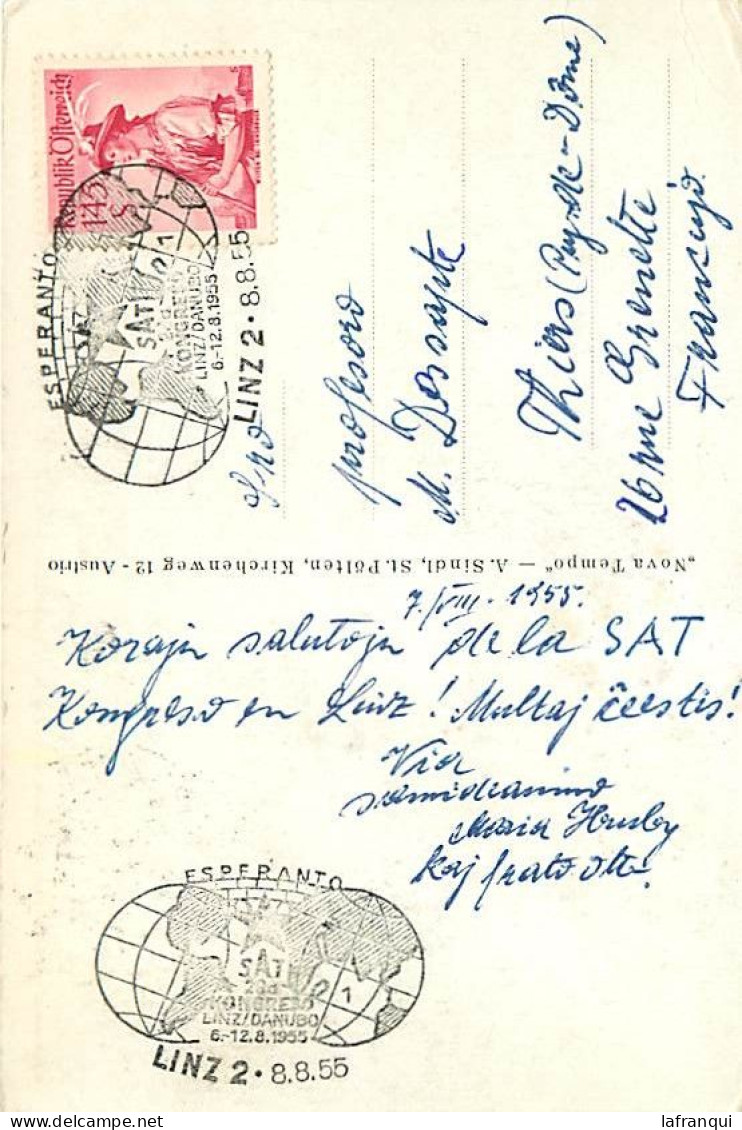 Republik Österreich
1.45
S
ESPERANTO
SAT
28a
KONGRESO
LINZ/DANUBO
6.-12.8.1955
LINZ 2 · 8.8.55
1
S-ro
profesoro
M. Dessapte
Thiers (Puy-de-Dôme)
26 rue Grenette
Francujo
„Nova Tempo" — A. Sindl, St. Pölten, Kirchenweg 12 - Austrio
7./VIII. 1955.
Korajn salutojn de la SAT
Kongreso en Linz! Multaj ĉeestis!
Via
samideanino
Maria Hruby
kaj frato Otto.
ESPERANTO
SAT
28a
KONGRESO
LINZ/DANUBO
6.-12.8.1955
LINZ 2 · 8.8.55
1
lafranqui